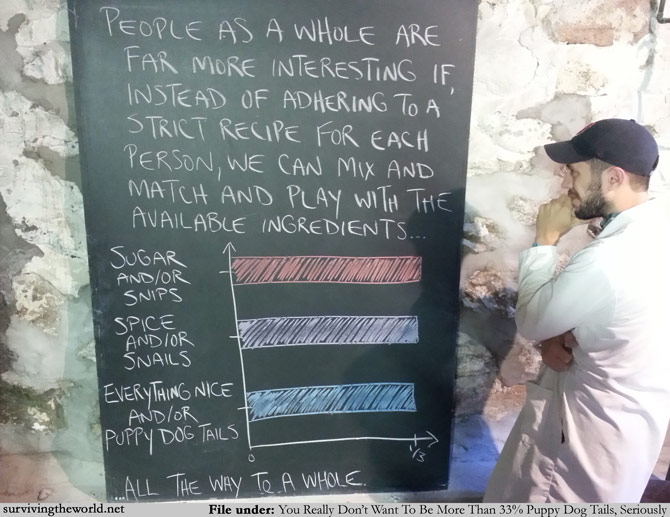 PEOPLE AS A WHOLE ARE
FAR MORE INTERESTING IF,
INSTEAD OF ADHERING TO A
STRICT RECIPE FOR EACH
PERSON, WE CAN MIX AND
MATCH AND PLAY WITH THE
AVAILABLE INGREDIENTS...
SUGAR
AND/OR
SNIPS
SPICE
AND/OR
SNAILS
EVERYTHING NICE
AND/OR
PUPPY DOG TAILS
0
1/3
...ALL THE WAY TO A WHOLE.
survivingtheworld.net
File under: You Really Don't Want To Be More Than 33% Puppy Dog Tails, Seriously